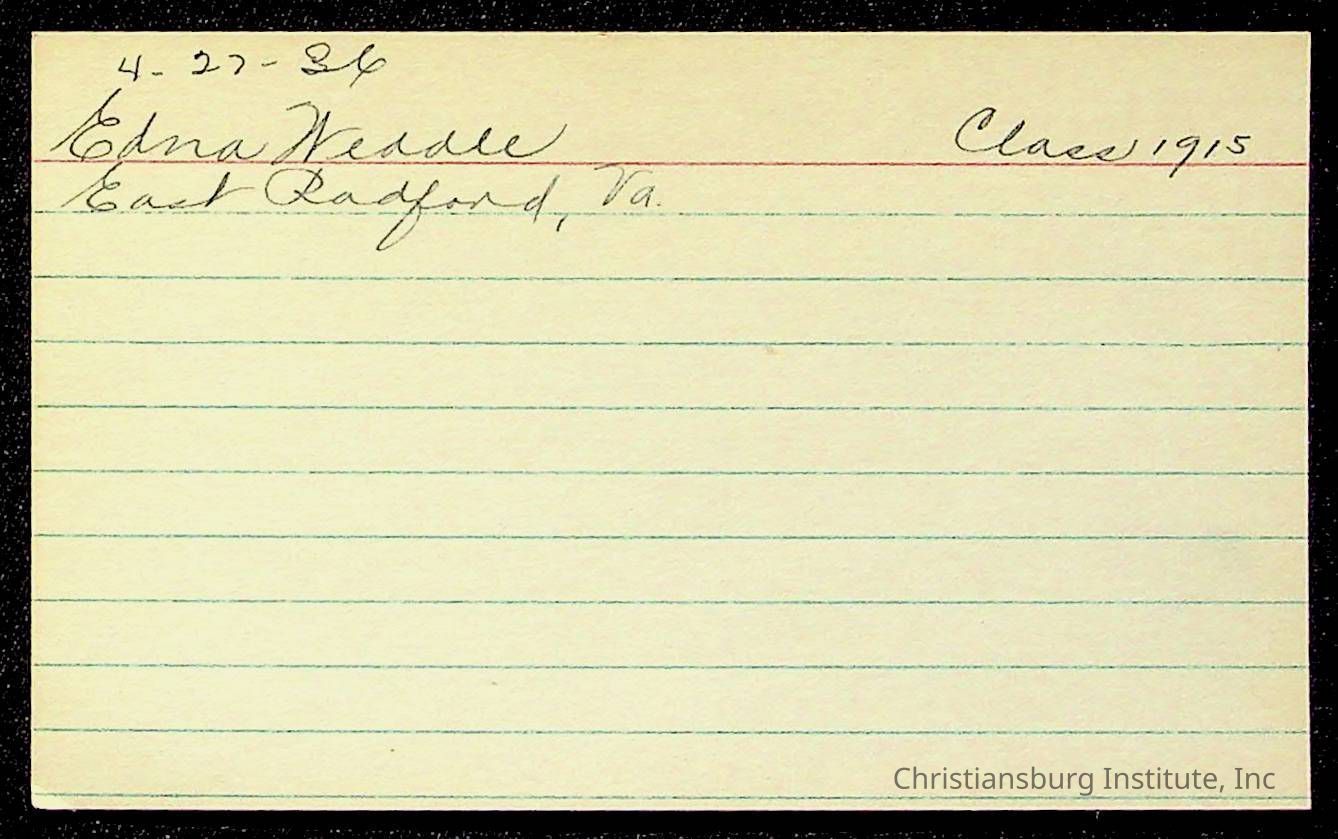 4-27-36
Edna Weddle Class 1915
East Radford, Va.
Christiansburg Institute, Inc